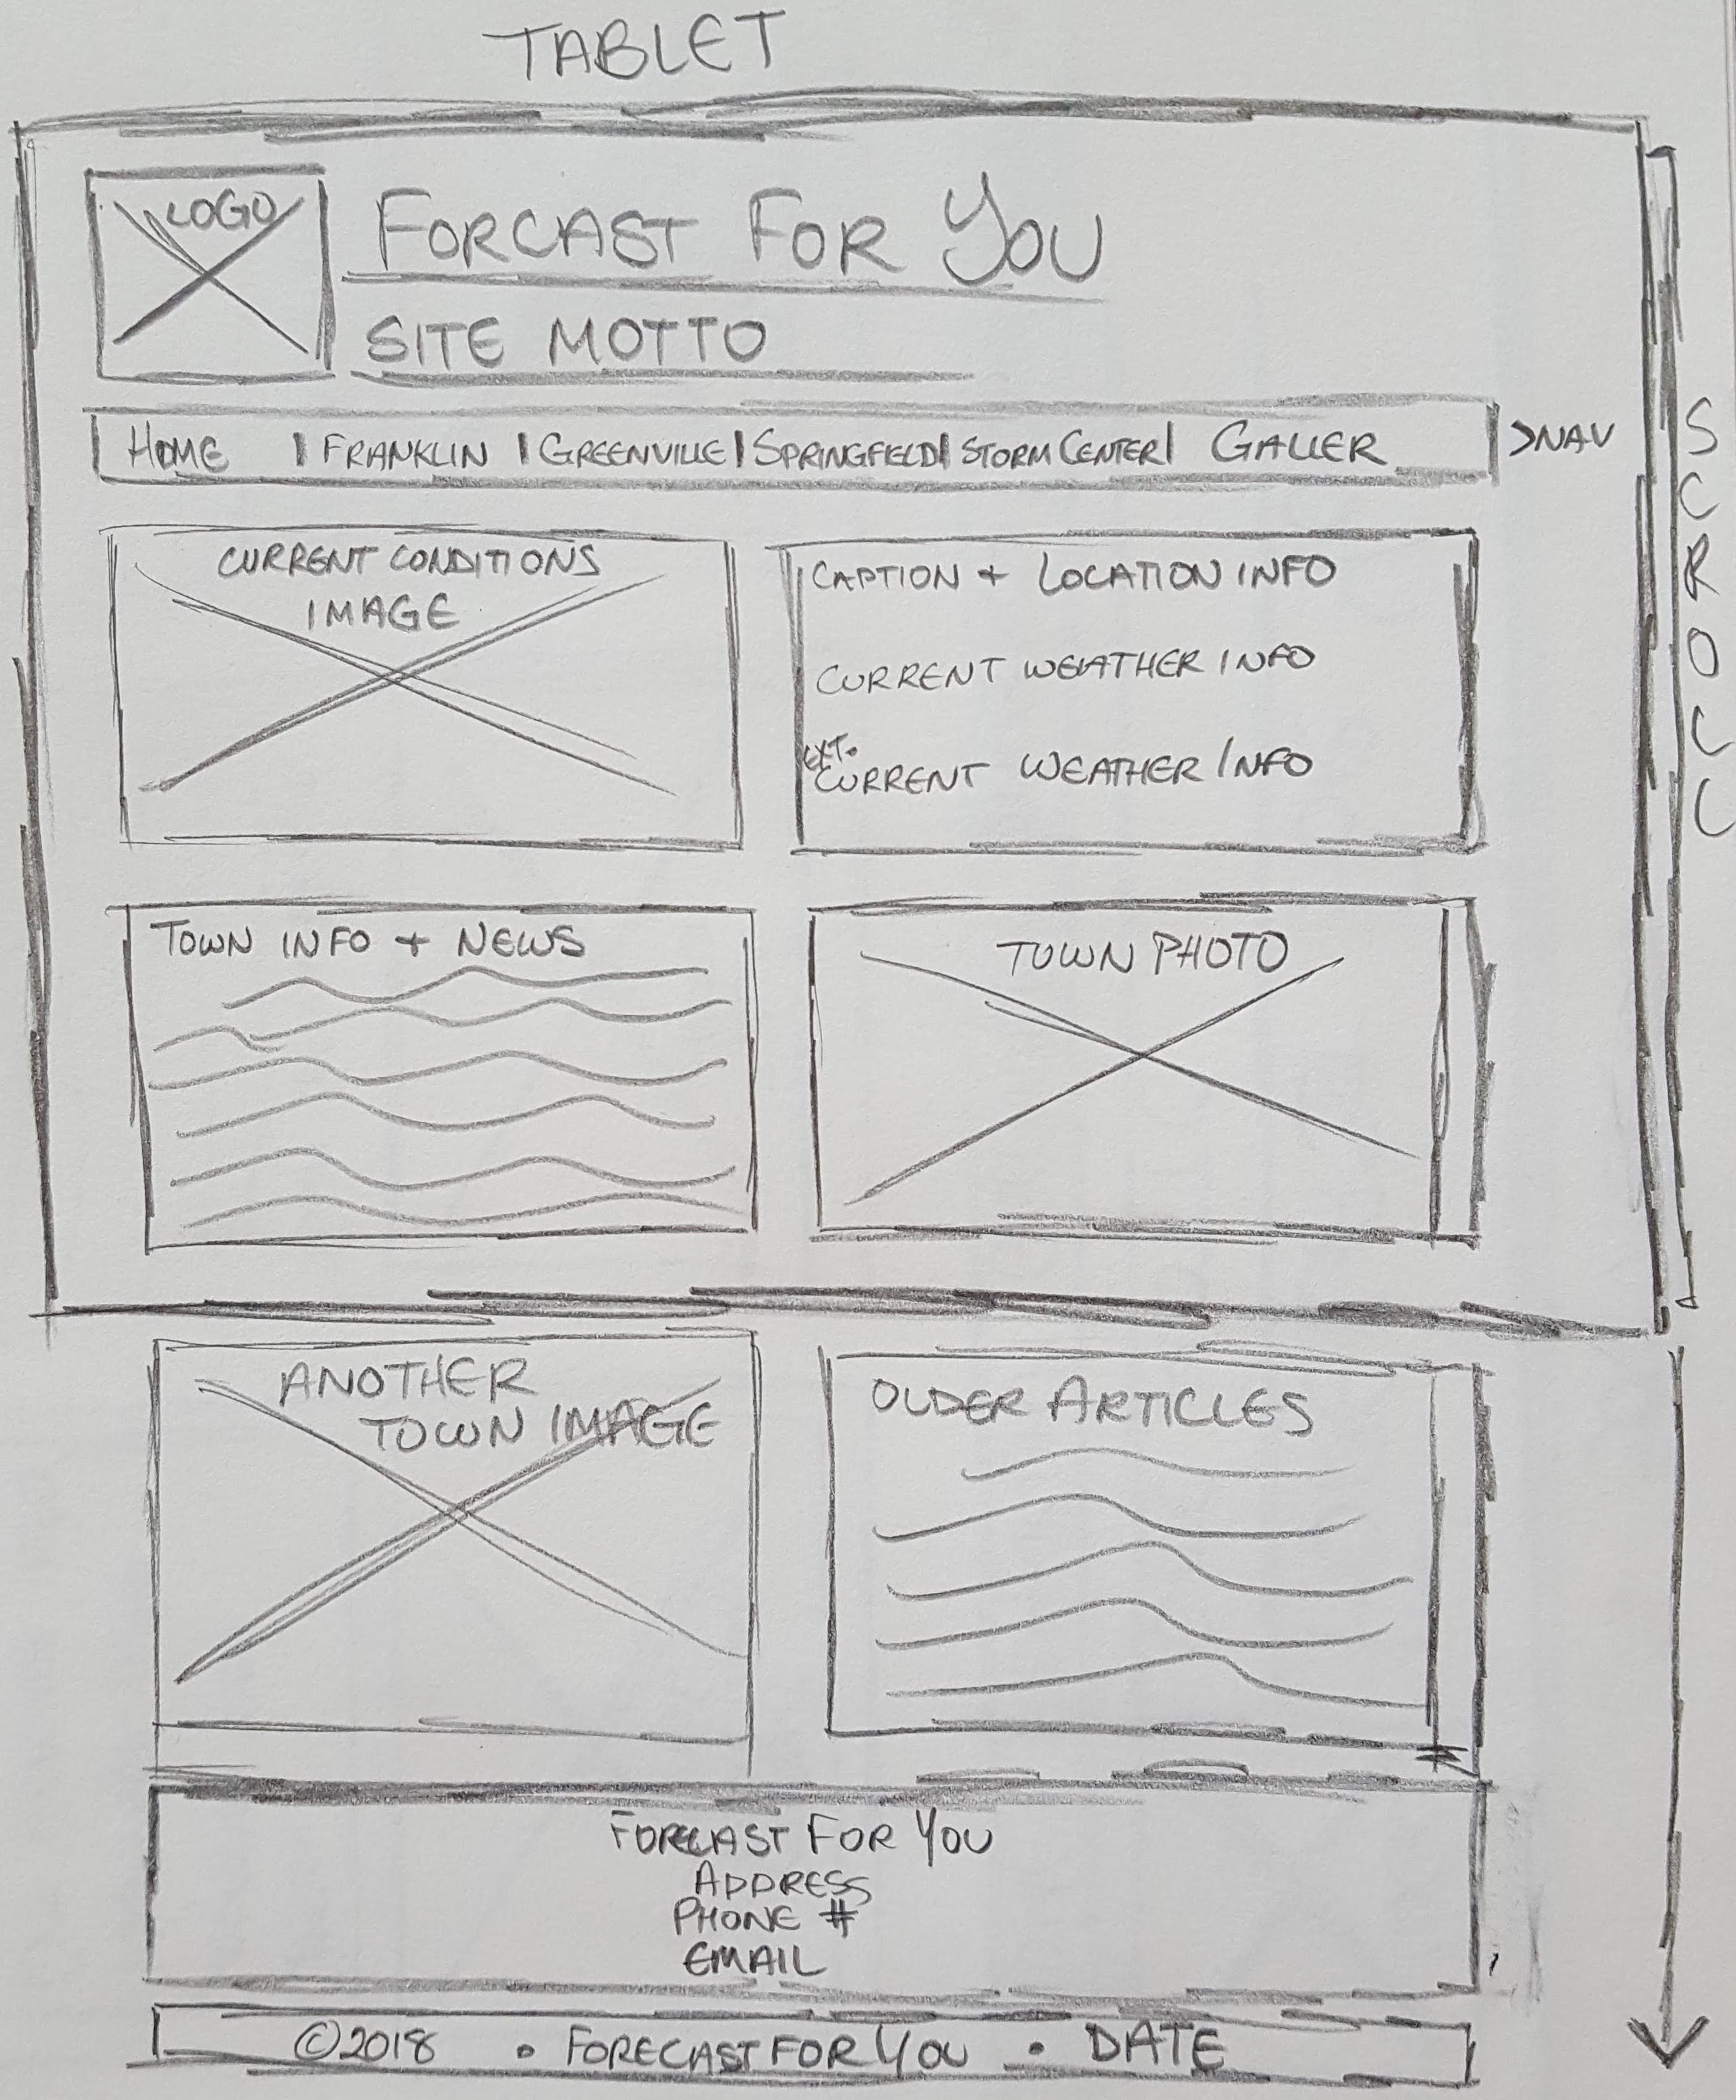 TABLET
LOGO
FORCAST FOR YOU
SITE MOTTO
HOME | FRANKLIN | GREENVILLE | SPRINGFIELD | STORM CENTER | GALLER
>NAV
SCROLL
CURRENT CONDITIONS
IMAGE
CAPTION + LOCATION INFO
CURRENT WEATHER INFO
EXT.
CURRENT WEATHER INFO
TOWN INFO + NEWS
TOWN PHOTO
ANOTHER
TOWN IMAGE
OLDER ARTICLES
FORECAST FOR YOU
ADDRESS
PHONE #
EMAIL
©2018 • FORECAST FOR YOU • DATE